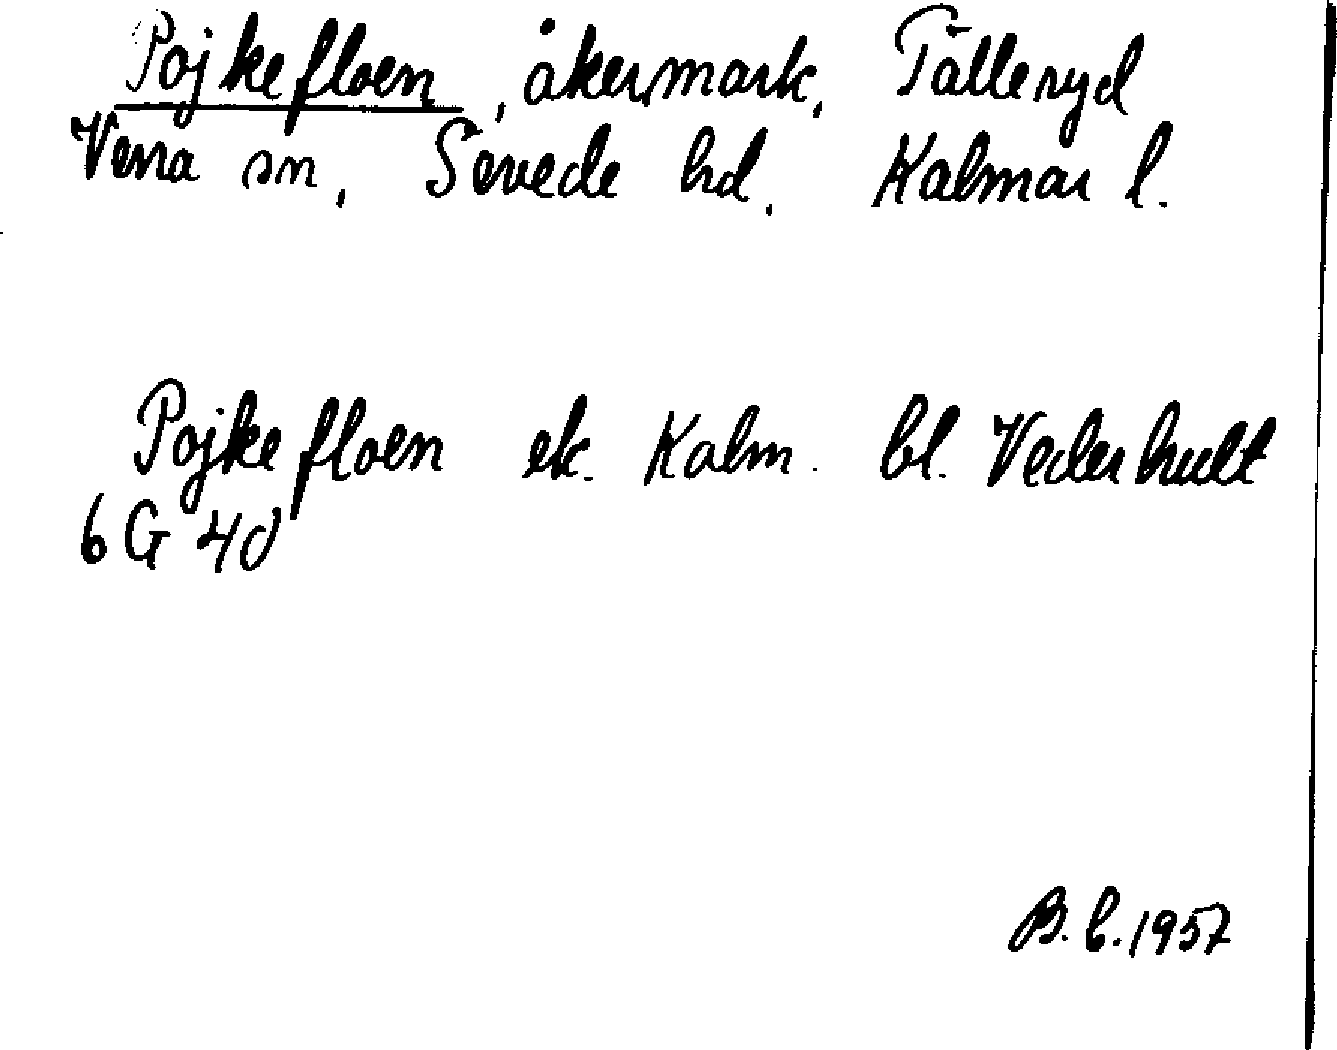 Pojkefloen, åkermark, Tälleryd
Vena sn, Sevede hd, Kalmar l.
Pojkefloen ek. Kalm. bl. Vederhult
6 G 4d
B. b. 1957